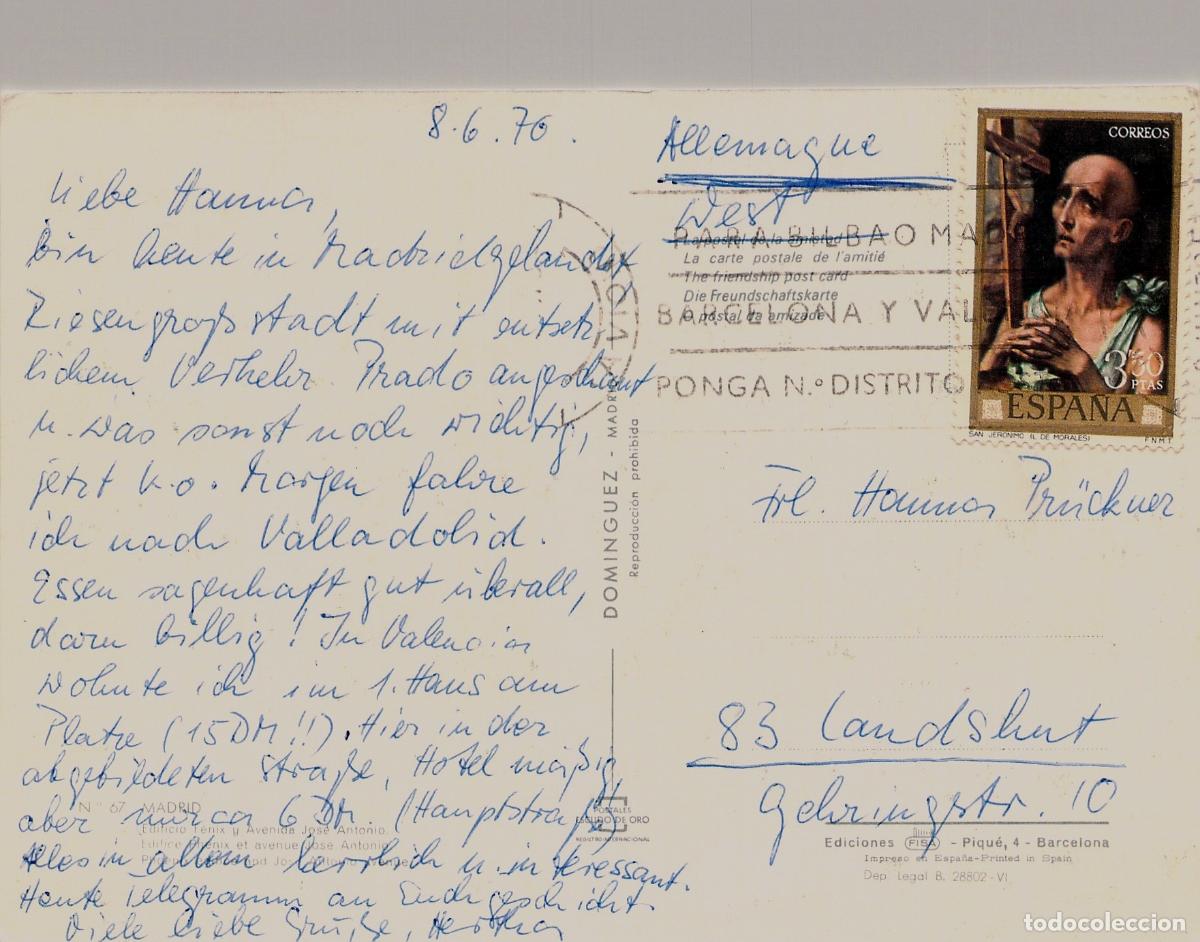 8.6.70.
Liebe Hanna,
bin heute in Madrid gelandet
Riesengroßstadt mit entsetz
lichem Verkehr. Prado angeschaut
u. was sonst noch wichtig,
jetzt k.o. Morgen fahre
ich nach Valladolid.
Essen sagenhaft gut überall,
dazu billig! In Valencia
wohnte ich im 1. Haus am
Platze (15 DM!!). Hier in der
abgebildeten Straße, Hotel mäßig,
aber nur ca 6 DM. (Hauptstraße)
Alles in allem herrlich u. interessant.
Heute Telegramm an Euch geschickt.
Viele liebe Grüße, Hertha
Nº 67 MADRID
Edificio Fénix y Avenida José Antonio.
Edifice Phénix et avenue José Antonio
DOMINGUEZ - MADRID
Reproducción prohibida
POSTALES
ESCUDO DE ORO
REGISTRO INTERNACIONAL
Allemagne
West
La postal de la amistad
La carte postale de l'amitié
The friendship post card
Die Freundschaftskarte
O postal da amizade
PARA BILBAO MAD
BARCELONA Y VALE
PONGA N.º DISTRITO
CORREOS
3'50
PTAS
ESPAÑA
SAN JERONIMO (L. DE MORALES)
F.N.M.T.
Frl. Hanna Prückner
83 Landshut
Gehringstr. 10
Ediciones FISA - Piqué, 4 - Barcelona
Impreso en España-Printed in Spain
Dep. Legal B. 28802-VI
todocoleccion